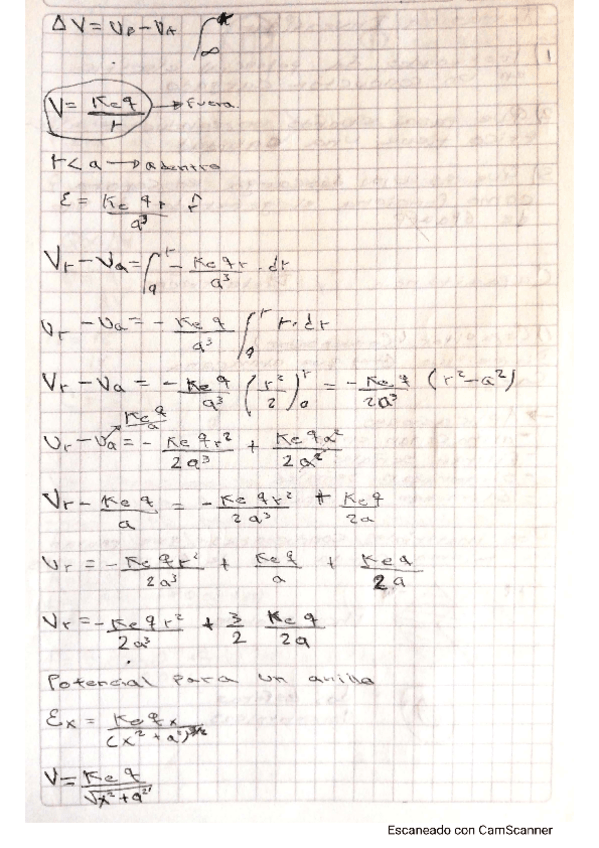 ΔV = V_B − V_A ∫_∞^r
V = Ke q / r → Fuera.
r < a → adentro
ε = Ke q r / a³ r̂
V_r − V_a = ∫_a^r − Ke q r / a³ · dr
V_r − V_a = − Ke q / a³ ∫_a^r r · dr
V_r − V_a = − Ke q / a³ (r² / 2)_a^r = − Ke q / 2a³ (r² − a²)
Ke q / a
V_r − V_a = − Ke q r² / 2a³ + Ke q a² / 2a²
V_r − Ke q / a = − Ke q r² / 2a³ + Ke q / 2a
V_r = − Ke q r² / 2a³ + Ke q / a + Ke q / 2a
V_r = − Ke q r² / 2a³ + 3 / 2 Ke q / 2a
Potencial para un anillo
Ex = Ke q x / (x² + a²)^3/2
V = Ke q / √x² + a²
Escaneado con CamScanner